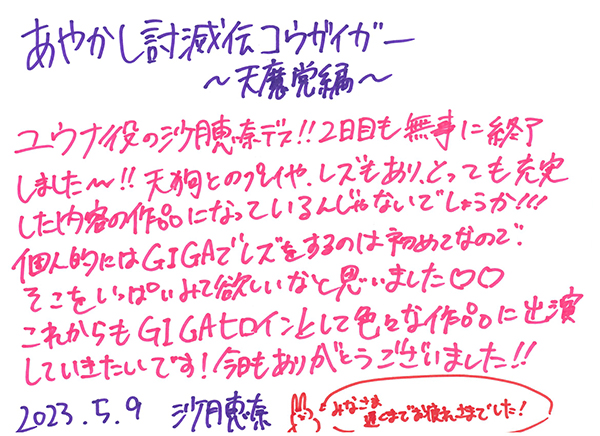 あやかし討滅伝コウガイガー
〜天魔党編〜
ユウナ役の沙月恵奈デス!!2日目も無事に終了
しました〜!!天狗とのプレイや、レズもあり、とっても充実
した内容の作品になっているんじゃないでしょうか!!!
個人的にはGIGAでレズをするのは初めてなので
そこをいっぱいみて欲しいなと思いました♡♡
これからもGIGAヒロインとして色々な作品に出演
していきたいです!今日もありがとうございました!!
2023.5.9 沙月恵奈
みなさま
遅くまでお疲れさまでした!